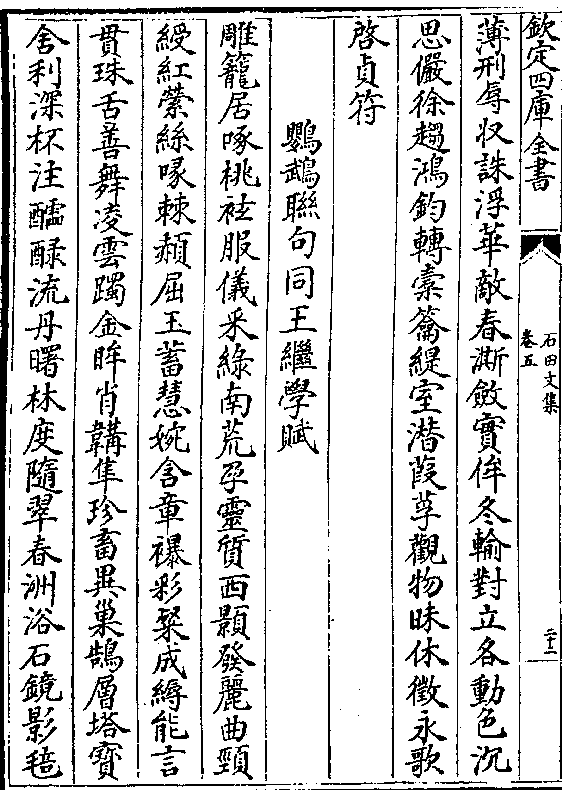 欽定四庫全書
石田文集
卷五
二十二
薄刑辱收誅浮華敵春澌斂實侔冬輸對立各動色沉
思儼徐趨鴻鈞轉橐籥緹室潛葭莩觀物昧休徵永歌
啓貞符
鸚鵡聯句同王繼學賦
雕籠居啄桃袪服儀采綠南荒孕靈質西顥發麗曲頸
綬紅縈絲喙棘頳屈玉蓄慧婉含章襮彩粲成縟能言
貫珠舌善舞凌雲躅金眸肖韝隼珍畜異巢鵠層塔寶
舍利深杯注醹醁流丹曙林度隨翠春洲浴石鏡影